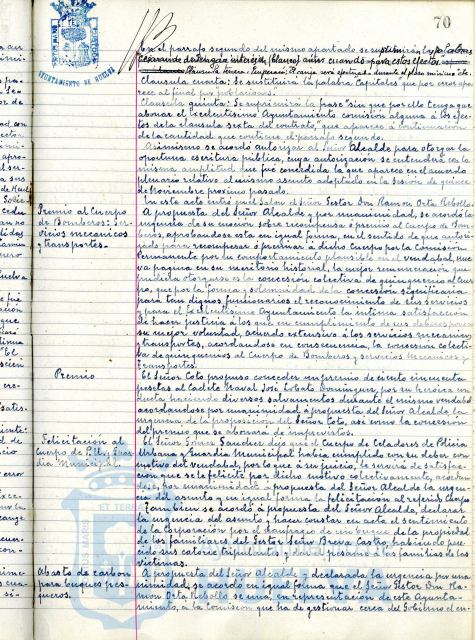 70
AYUNTAMIENTO DE HUELVA
En el párrafo segundo del mismo apartado se suprimirán las palabras
Cláusula cuarta: Se sustituirá la palabra Capitales que por error apa-
rece al final por jubilaciones.
Cláusula quinta: Se suprimirá la frase "sin que por ello tenga que
abonar el Excelentísimo Ayuntamiento comisión alguna a los efec-
tos de la cláusula sexta del contrato", que aparece a continuación
de la cantidad que contiene el párrafo segundo.
Asimismo se acordó autorizar al Señor Alcalde para otorgar la
oportuna escritura pública, cuya autorización se entenderá con la
misma amplitud que fué concedida la que aparece en el acuerdo
plenario relativo al mismo asunto adoptado en la sesión de quince
de Noviembre próximo pasado.
En este acto entró en el Salón el Señor Gestor Don Ramón Orta Rebollo.
Premio al Cuerpo
de Bomberos: Ser-
vicios mecánicos
y transportes.
A propuesta del Señor Alcalde y por unanimidad, se acordó la
urgencia de su moción sobre recompensa o premio al Cuerpo de Bom-
beros, aprobándose esta en igual forma, en el sentido de que autori-
zado para recompensar o premiar a dicho Cuerpo por la Comisión
Permanente por su comportamiento plausible en el vendabal, nue-
va página en su meritorio historial, la mejor remuneración que
pudiera otorgarse es la concesión colectiva de quinquenio al Cuer-
po, que por la forma y solemnidad de la concesión significaría
para tan dignos funcionarios el reconocimiento de sus servicios
y para el Excelentísimo Ayuntamiento la íntima satisfacción
de hacer justicia a los que en cumplimiento de sus deberes ponen
su mejor voluntad, acuerdo extensivo a los servicios mecánicos y
transportes, acordándose en consecuencia, la concesión colecti-
va de quinquenios al Cuerpo de Bomberos y servicios Mecánicos y
Transportes.
Premio
El Señor Coto propuso conceder un premio de ciento cincuenta
pesetas al Cadete Naval José Lobato Domínguez, por su heroica con-
ducta haciendo diversos salvamentos durante el mismo vendabal
acordándose por unanimidad a propuesta del Señor Alcalde, la
urgencia de la proposición del Señor Coto, así como la concesión
del premio que se abonará de imprevistos.
Felicitación al
Cuerpo de Policía y Guar-
dia Municipal.
El Señor Gómez Sánchez dijo que el Cuerpo de Celadores de Policía
Urbana y Guardia Municipal había cumplido con su deber con
motivo del vendabal, por lo que a su juicio, le serviría de satisfac-
ción que se le felicite por dicho motivo colectivamente, acordán-
dose, por unanimidad a propuesta del Señor Alcalde la urgen-
cia del asunto y en igual forma la felicitación al referido Cuerpo.
También se acordó a propuesta del Señor Alcalde, declarar
la urgencia del asunto y hacer constar en acta el sentimiento
de la Corporación por el naufragio de un buque de la propiedad
de los familiares del Gestor Señor Brera Castro, habiendo pere-
cido sus catorce tripulantes y dar el pésame a las familias de las
víctimas.
Abasto de carbón
para buques pes-
queros.
A propuesta del Señor Alcalde y declarada la urgencia por una-
nimidad, se acordó en igual forma que el Señor Gestor Don Ra-
món Orta Rebollo se una, en representación de este Ayunta-
miento, a la Comisión que ha de gestionar cerca del Gobierno el en-